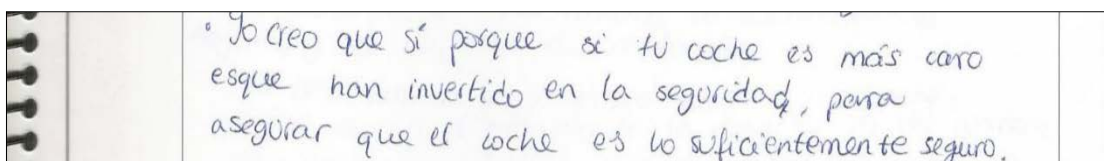 • Yo creo que sí porque si tu coche es más caro
esque han invertido en la seguridad, para
asegurar que el coche es lo suficientemente seguro.